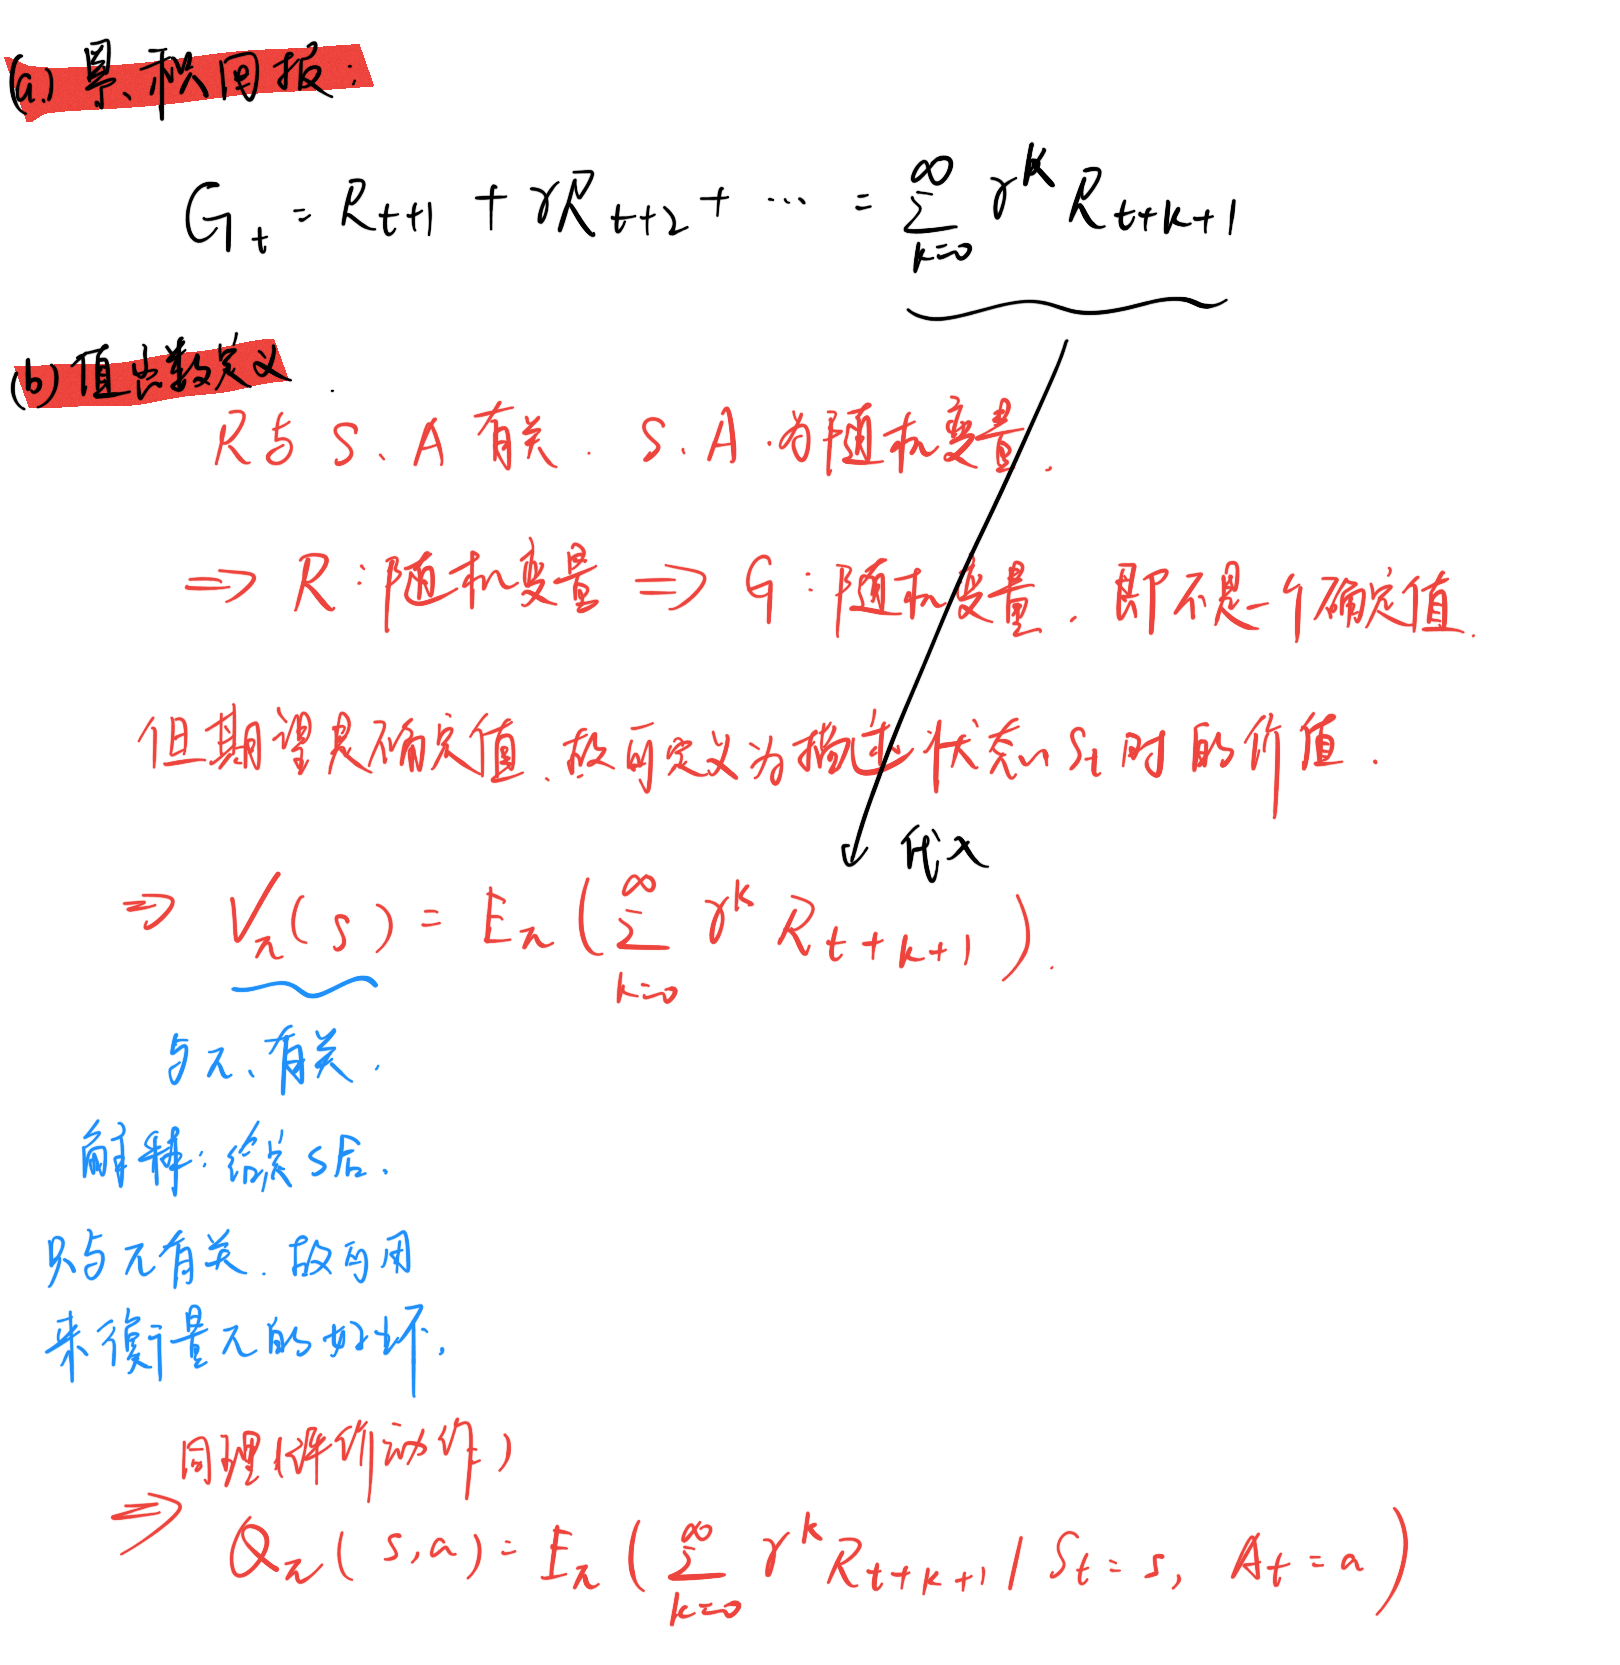 (a) 累积回报:
G_t = R_{t+1} + γR_{t+2} + ··· = \sum_{k=0}^{∞} γ^k R_{t+k+1}
(b) 值函数定义.
R与 S、A 有关. S、A.为随机变量.
⇒ R:随机变量 ⇒ G:随机变量. 即不是一个确定值.
但期望是确定值.故可定义为描述状态 S_t 时的价值.
代入
⇒ V_π(s) = E_π(\sum_{k=0}^{∞} γ^k R_{t+k+1}).
与π、有关.
解释:给定 s后.
只与π有关.故可用
来衡量π的好坏.
同理(评价动作)
⇒ Q_π(s,a) = E_π(\sum_{k=0}^{∞} γ^k R_{t+k+1} | S_t = s, A_t = a)